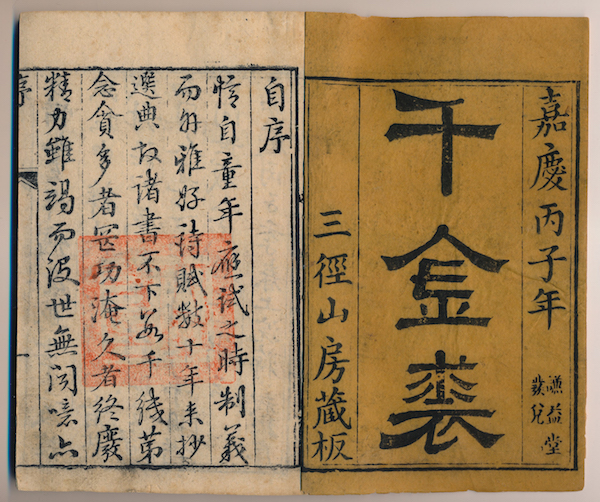 嘉慶丙子年
謙益堂
發兌
千金裘
三徑山房藏板
自序
愔自童年應試之時制義
而外雅好詩賦數十年來抄
選典故諸書不下若干綫第
念貪多者罔功淹久者終廢
精力雖竭而沒世無聞噫亦
序